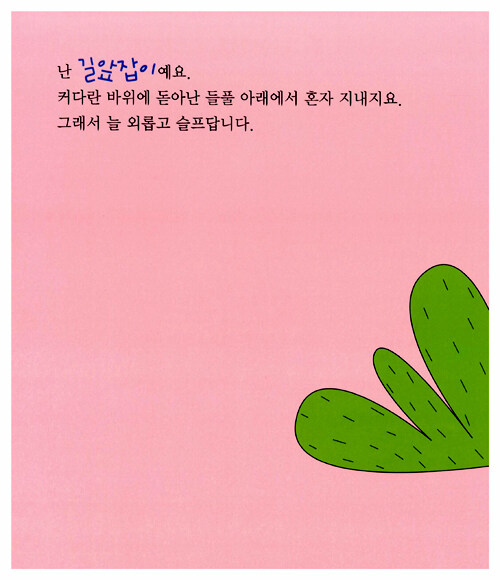 난 길앞잡이예요.
커다란 바위에 돋아난 들풀 아래에서 혼자 지내지요.
그래서 늘 외롭고 슬프답니다.